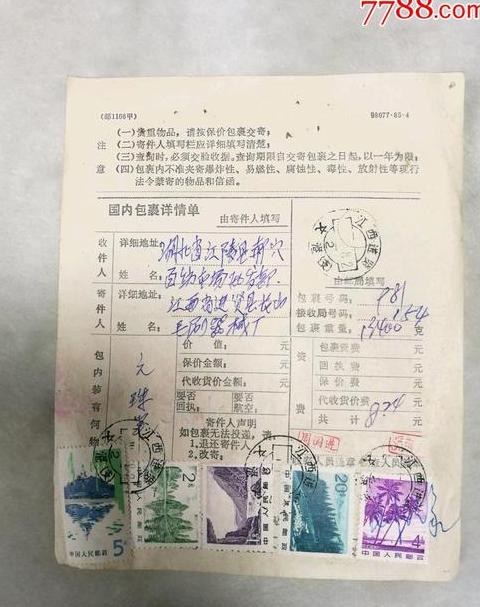 7788.com
(邮1106甲)
98077·85·4
(一)贵重物品，请按保价包裹交寄；
注 (二)寄件人填写栏应详细填写清楚；
(三)查询时，必须交验收据。查询期限自交寄包裹之日起，以一年为限；
意 (四)包裹内不准夹寄爆炸性、易燃性、腐蚀性、毒性、放射性等现行
法令禁寄的物品和信函。
国内包裹详情单
由寄件人填写
由邮局填写
收件人
详细地址：湖北省江陵县郝穴
百货
姓名：
寄件人
详细地址：江西省进贤县长山
姓名：毛刷器械厂
包裹号码：781
接收局号码：154
包裹重量：13400克
包内装有何物
元珠笔
价值：元
保价金额：元
代收货价金额：元
要否回执：
要否航空：
寄件人声明
如包裹无法投递，
1.退还寄件人
2.改寄：
资费
包裹资费 元
回执费 元
保价费 元
代收货价费 元
共计 8.24 元
江西进贤
江西进
江西进
中国人民邮政 5分
2分
中国人民邮政
20分 中国人民邮政
中国人民邮政 4